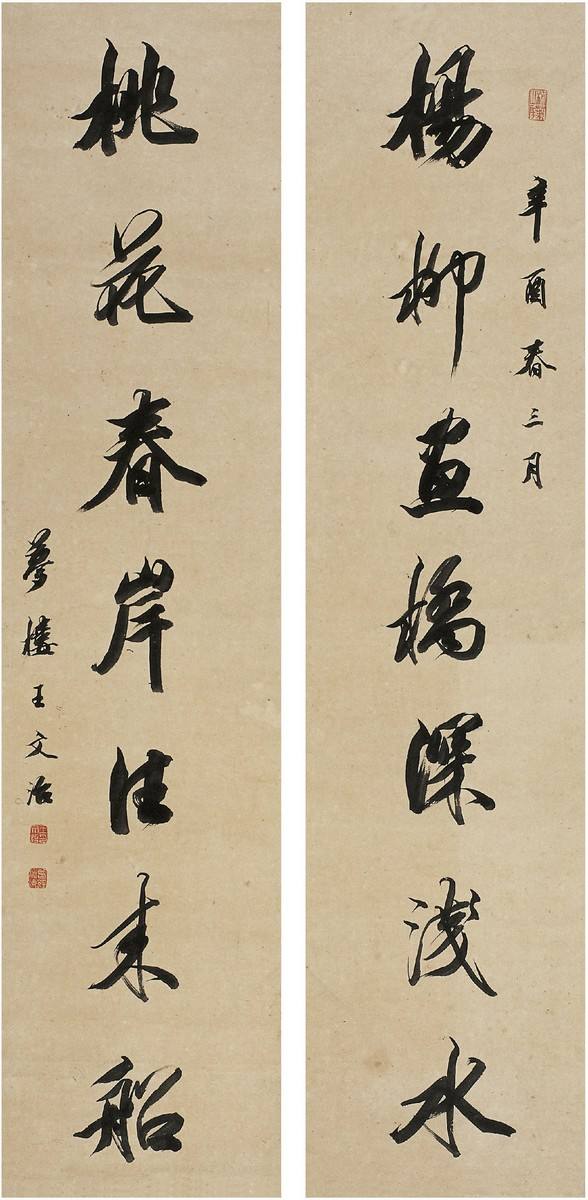 辛酉春三月
楊柳畫橋深淺水
桃花春岸往来船
夢樓王文治